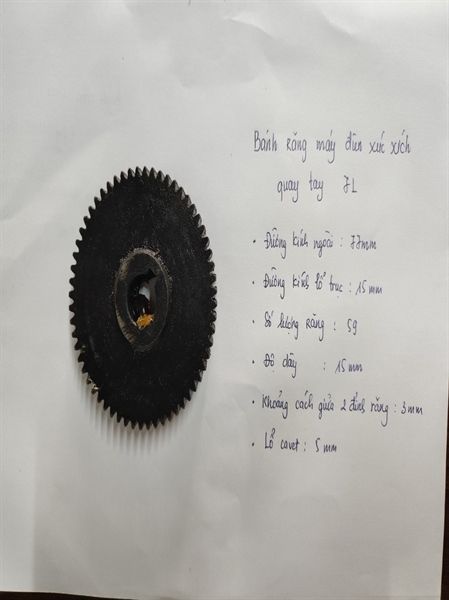 Bánh răng máy đùn xúc xích
quay tay 7L
• Đường kính ngoài : 77mm
• Đường kính lỗ trục : 15 mm
• Số lượng răng : 59
• Độ dày : 15 mm
• Khoảng cách giữa 2 đỉnh răng : 3mm
• Lỗ cavet : 5 mm